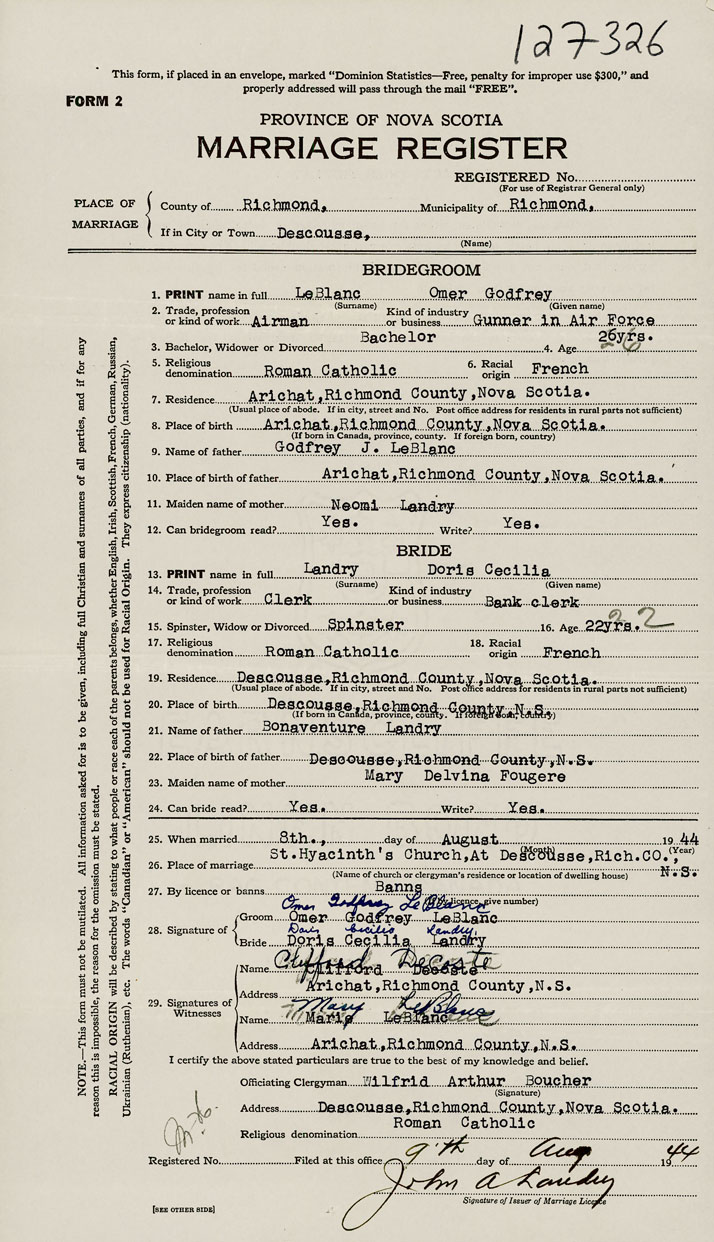 127326
This form, if placed in an envelope, marked "Dominion Statistics—Free, penalty for improper use $300," and
properly addressed will pass through the mail "FREE".
FORM 2
PROVINCE OF NOVA SCOTIA
MARRIAGE REGISTER
REGISTERED No.
(For use of Registrar General only)
PLACE OF MARRIAGE
County of Richmond, Municipality of Richmond,
If in City or Town Descousse,
(Name)
BRIDEGROOM
1. PRINT name in full LeBlanc Omer Godfrey
(Surname) (Given name)
2. Trade, profession or kind of work Airman Kind of industry or business Gunner in Air Force
3. Bachelor, Widower or Divorced Bachelor 4. Age 26yrs.
5. Religious denomination Roman Catholic 6. Racial origin French
7. Residence Arichat,Richmond County,Nova Scotia.
(Usual place of abode. If in city, street and No. Post office address for residents in rural parts not sufficient)
8. Place of birth Arichat,Richmond County,Nova Scotia.
(If born in Canada, province, county. If foreign born, country)
9. Name of father Godfrey J. LeBlanc
10. Place of birth of father Arichat,Richmond County,Nova Scotia.
11. Maiden name of mother Neomi Landry
12. Can bridegroom read? Yes. Write? Yes.
BRIDE
13. PRINT name in full Landry Doris Cecilia
(Surname) (Given name)
14. Trade, profession or kind of work Clerk Kind of industry or business Bank clerk
15. Spinster, Widow or Divorced Spinster 16. Age 22yrs. 22
17. Religious denomination Roman Catholic 18. Racial origin French
19. Residence Descousse,Richmond County,Nova Scotia.
(Usual place of abode. If in city, street and No. Post office address for residents in rural parts not sufficient)
20. Place of birth Descousse,Richmond County N.S.
(If born in Canada, province, county. If foreign born, country)
21. Name of father Bonaventure Landry
22. Place of birth of father Descousse,Richmond County,N.S.
23. Maiden name of mother Mary Delvina Fougere
24. Can bride read? Yes. Write? Yes.
25. When married 8th., day of August 1944
(Month) (Year)
26. Place of marriage St.Hyacinth's Church,At Descousse,Rich.CO., N.S.
(Name of church or clergyman's residence or location of dwelling house)
27. By licence or banns Banns
(If by licence, give number)
28. Signature of
Omer Godfrey LeBlanc
Groom Omer Godfrey LeBlanc
Doris Cecilia Landry
Bride Doris Cecilia Landry
29. Signatures of Witnesses
Clifford Decoste
Name Clifford Decoste
Address Arichat,Richmond County,N.S.
Mary LeBlanc
Name Marie LeBlanc
Address Arichat,Richmond County,N.S.
I certify the above stated particulars are true to the best of my knowledge and belief.
Officiating Clergyman Wilfrid Arthur Boucher
(Signature)
Address Descousse,Richmond County,Nova Scotia.
Religious denomination Roman Catholic
Registered No. Filed at this office 9th day of Aug 1944
John A Landry
Signature of Issuer of Marriage Licence
[SEE OTHER SIDE]
NOTE.—This form must not be mutilated. All information asked for is to be given, including full Christian and surnames of all parties, and if for any
reason this is impossible, the reason for the omission must be stated.
RACIAL ORIGIN will be described by stating to what people or race each of the parents belongs, whether English, Irish, Scottish, French, German, Russian,
Ukrainian (Ruthenian), etc. The words "Canadian" or "American" should not be used for Racial Origin. They express citizenship (nationality).